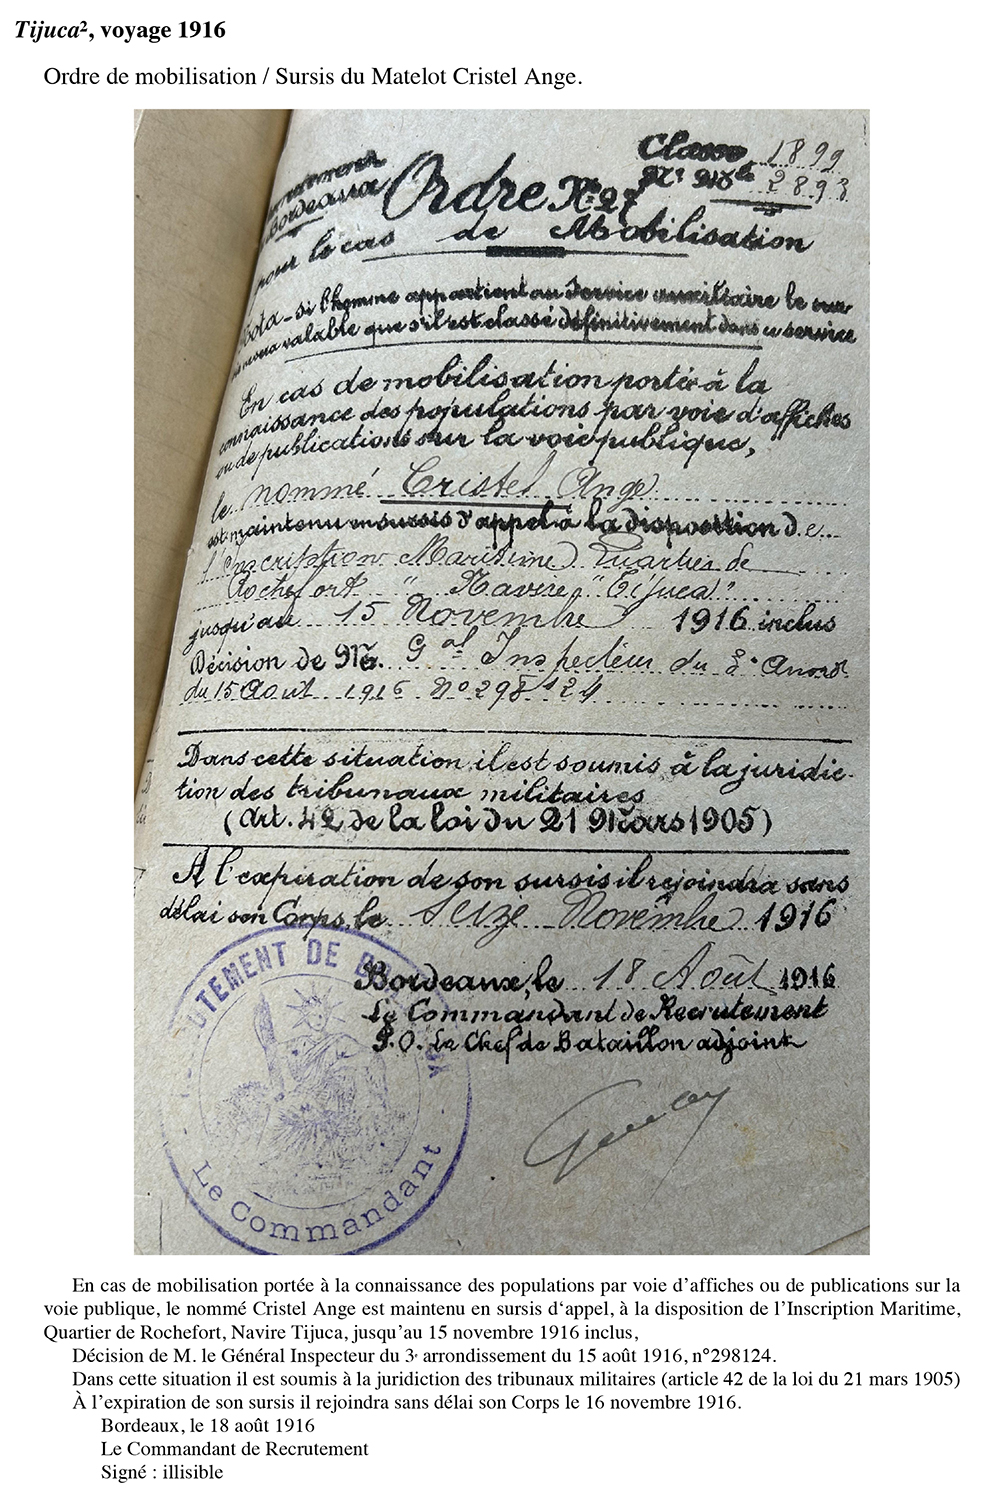 Tijuca², voyage 1916
Ordre de mobilisation / Sursis du Matelot Cristel Ange.
Classe 1899
N° Mle 2893
Bordeaux
Ordre N° 27
pour le cas de Mobilisation
Nota - si l'homme appartient au Service auxiliaire le
ne sera valable que s'il est classé définitivement dans ce service
En cas de mobilisation portée à la
connaissance des populations par voie d'affiches
ou de publications sur la voie publique,
le nommé Cristel Ange
est maintenu en sursis d'appel à la disposition de
l'Inscription Maritime Quartier de
Rochefort " Navire "Tijuca"
jusqu'au 15 Novembre 1916 inclus
Décision de Mr. Gal Inspecteur du
du 15 Août 1916 N° 298124
Dans cette situation il est soumis à la juridic-
tion des tribunaux militaires
(Art. 42 de la loi du 21 Mars 1905)
A l'expiration de son sursis il rejoindra sans
délai son Corps, le Seize Novembre 1916
Bordeaux, le 18 Août 1916
Le Commandant de Recrutement
P.O. Le Chef de Bataillon adjoint
RECRUTEMENT DE BORDEAUX
Le Commandant
En cas de mobilisation portée à la connaissance des populations par voie d'affiches ou de publications sur la
voie publique, le nommé Cristel Ange est maintenu en sursis d'appel, à la disposition de l'Inscription Maritime,
Quartier de Rochefort, Navire Tijuca, jusqu'au 15 novembre 1916 inclus,
Décision de M. le Général Inspecteur du 3e arrondissement du 15 août 1916, n°298124.
Dans cette situation il est soumis à la juridiction des tribunaux militaires (article 42 de la loi du 21 mars 1905)
À l'expiration de son sursis il rejoindra sans délai son Corps le 16 novembre 1916.
Bordeaux, le 18 août 1916
Le Commandant de Recrutement
Signé : illisible